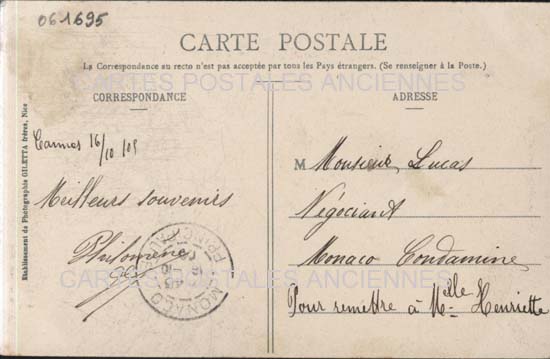 061695
CARTE POSTALE
La Correspondance au recto n'est pas acceptée par tous les Pays étrangers. (Se renseigner à la Poste.)
CARTES POSTALES ANCIENNES
CORRESPONDANCE
ADRESSE
Etablissement de Photographie GILETTA frères, Nice
Cannes 16/10/05
Meilleurs souvenirs
Philomène
M Monsieur Lucas
Négociant
Monaco Condamine
Pour remettre à Melle Henriette
CARTES POSTALES ANCIENNES
MONACO